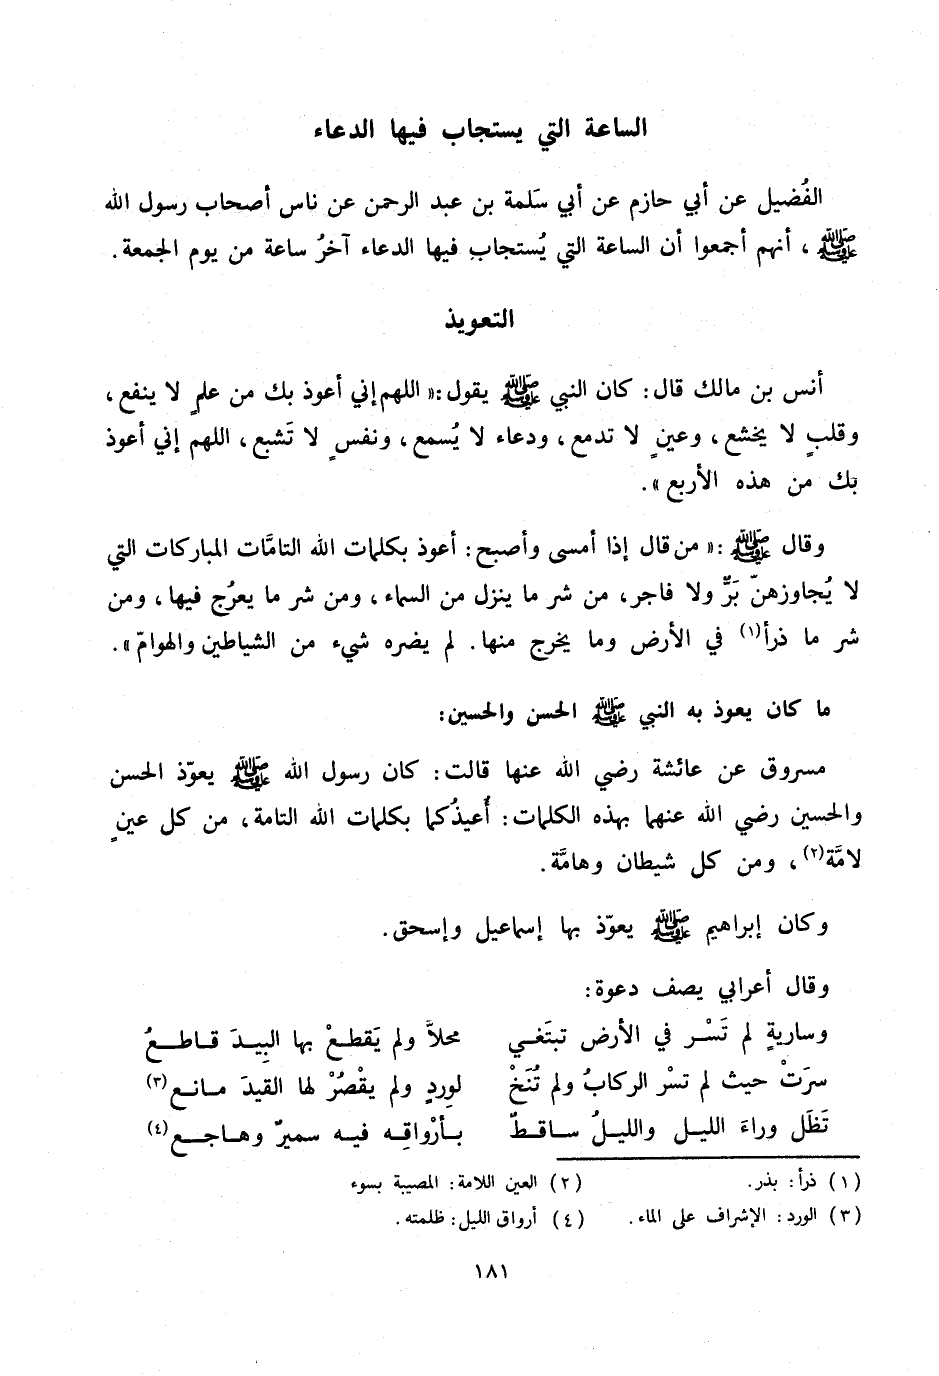 الساعة التي يستجاب فيها الدعاء
الفُضيل عن أبي حازم عن أبي سَلمة بن عبد الرحمن عن ناس أصحاب رسول الله
ﷺ ، أنهم أجمعوا أن الساعة التي يُستجاب فيها الدعاء آخرُ ساعة من يوم الجمعة .
التعويذ
أنس بن مالك قال : كان النبي ﷺ يقول : « اللهم إني أعوذ بك من علمٍ لا ينفع ،
وقلبٍ لا يخشع ، وعينٍ لا تدمع ، ودعاء لا يُسمع ، ونفسٍ لا تَشبع ، اللهم إني أعوذ
بك من هذه الأربع » .
وقال ﷺ : « من قال إذا أمسى وأصبح : أعوذ بكلمات الله التامَّات المباركات التي
لا يُجاوزهنّ بَرٌّ ولا فاجر ، من شر ما ينزل من السماء ، ومن شر ما يعرُج فيها ، ومن
شر ما ذرأ (١) في الأرض وما يخرج منها . لم يضره شيء من الشياطين والهوامّ » .
ما كان يعوذ به النبي ﷺ الحسن والحسين :
مسروق عن عائشة رضي الله عنها قالت : كان رسول الله ﷺ يعوّذ الحسن
والحسين رضي الله عنهما بهذه الكلمات : أُعيذُكما بكلمات الله التامة ، من كل عينٍ
لامَّة (٢) ، ومن كل شيطان وهامَّة .
وكان إبراهيم ﷺ يعوّذ بها إسماعيل وإسحق .
وقال أعرابي يصف دعوة :
وساريةٍ لم تَسْر في الأرض تبتَغي محلاًّ ولم يَقطعْ بها البِيدَ قاطعُ
سرَتْ حيث لم تسْر الركابُ ولم تُنَخْ لوِردٍ ولم يقْصُرْ لها القيدَ مانع (٣)
تَظَل وراءَ الليل والليلُ ساقطٌ بأرْواقِه فيه سميرٌ وهاجع (٤)
(١) ذرأ : بذر . (٢) العين اللامة : المصيبة بسوء
(٣) الورد : الإشراف على الماء . (٤) أرواق الليل : ظلمته .
١٨١